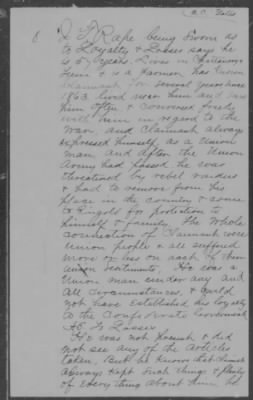 A.C. Yates
6
J T Rape being Sworn as
to Loyalty & Losses says he
is 57 years. Lives in
Tenn & is a Farmer has known
Claimant for Several years since
1863 lived near him and saw
him often & conversed freely
with him in regard to the
war and Claimant always
expressed himself as a Union
man and after the Union
army had passed he was
threatened by rebel raiders
& had to remove from his
place in the country & come
to Ringold for protection to
himself & family. The whole
connection of Claimant were
Union people & all suffered
more or less on acct of their
Union sentiments. He was a
Union man under any and
all circumstances, & could
not have Established his loyalty
to the Confederate Government
As To Losses
He was not present & did
not see any of the articles
taken. But he knows that Claimant
always kept such things & plenty
of Everything about him he